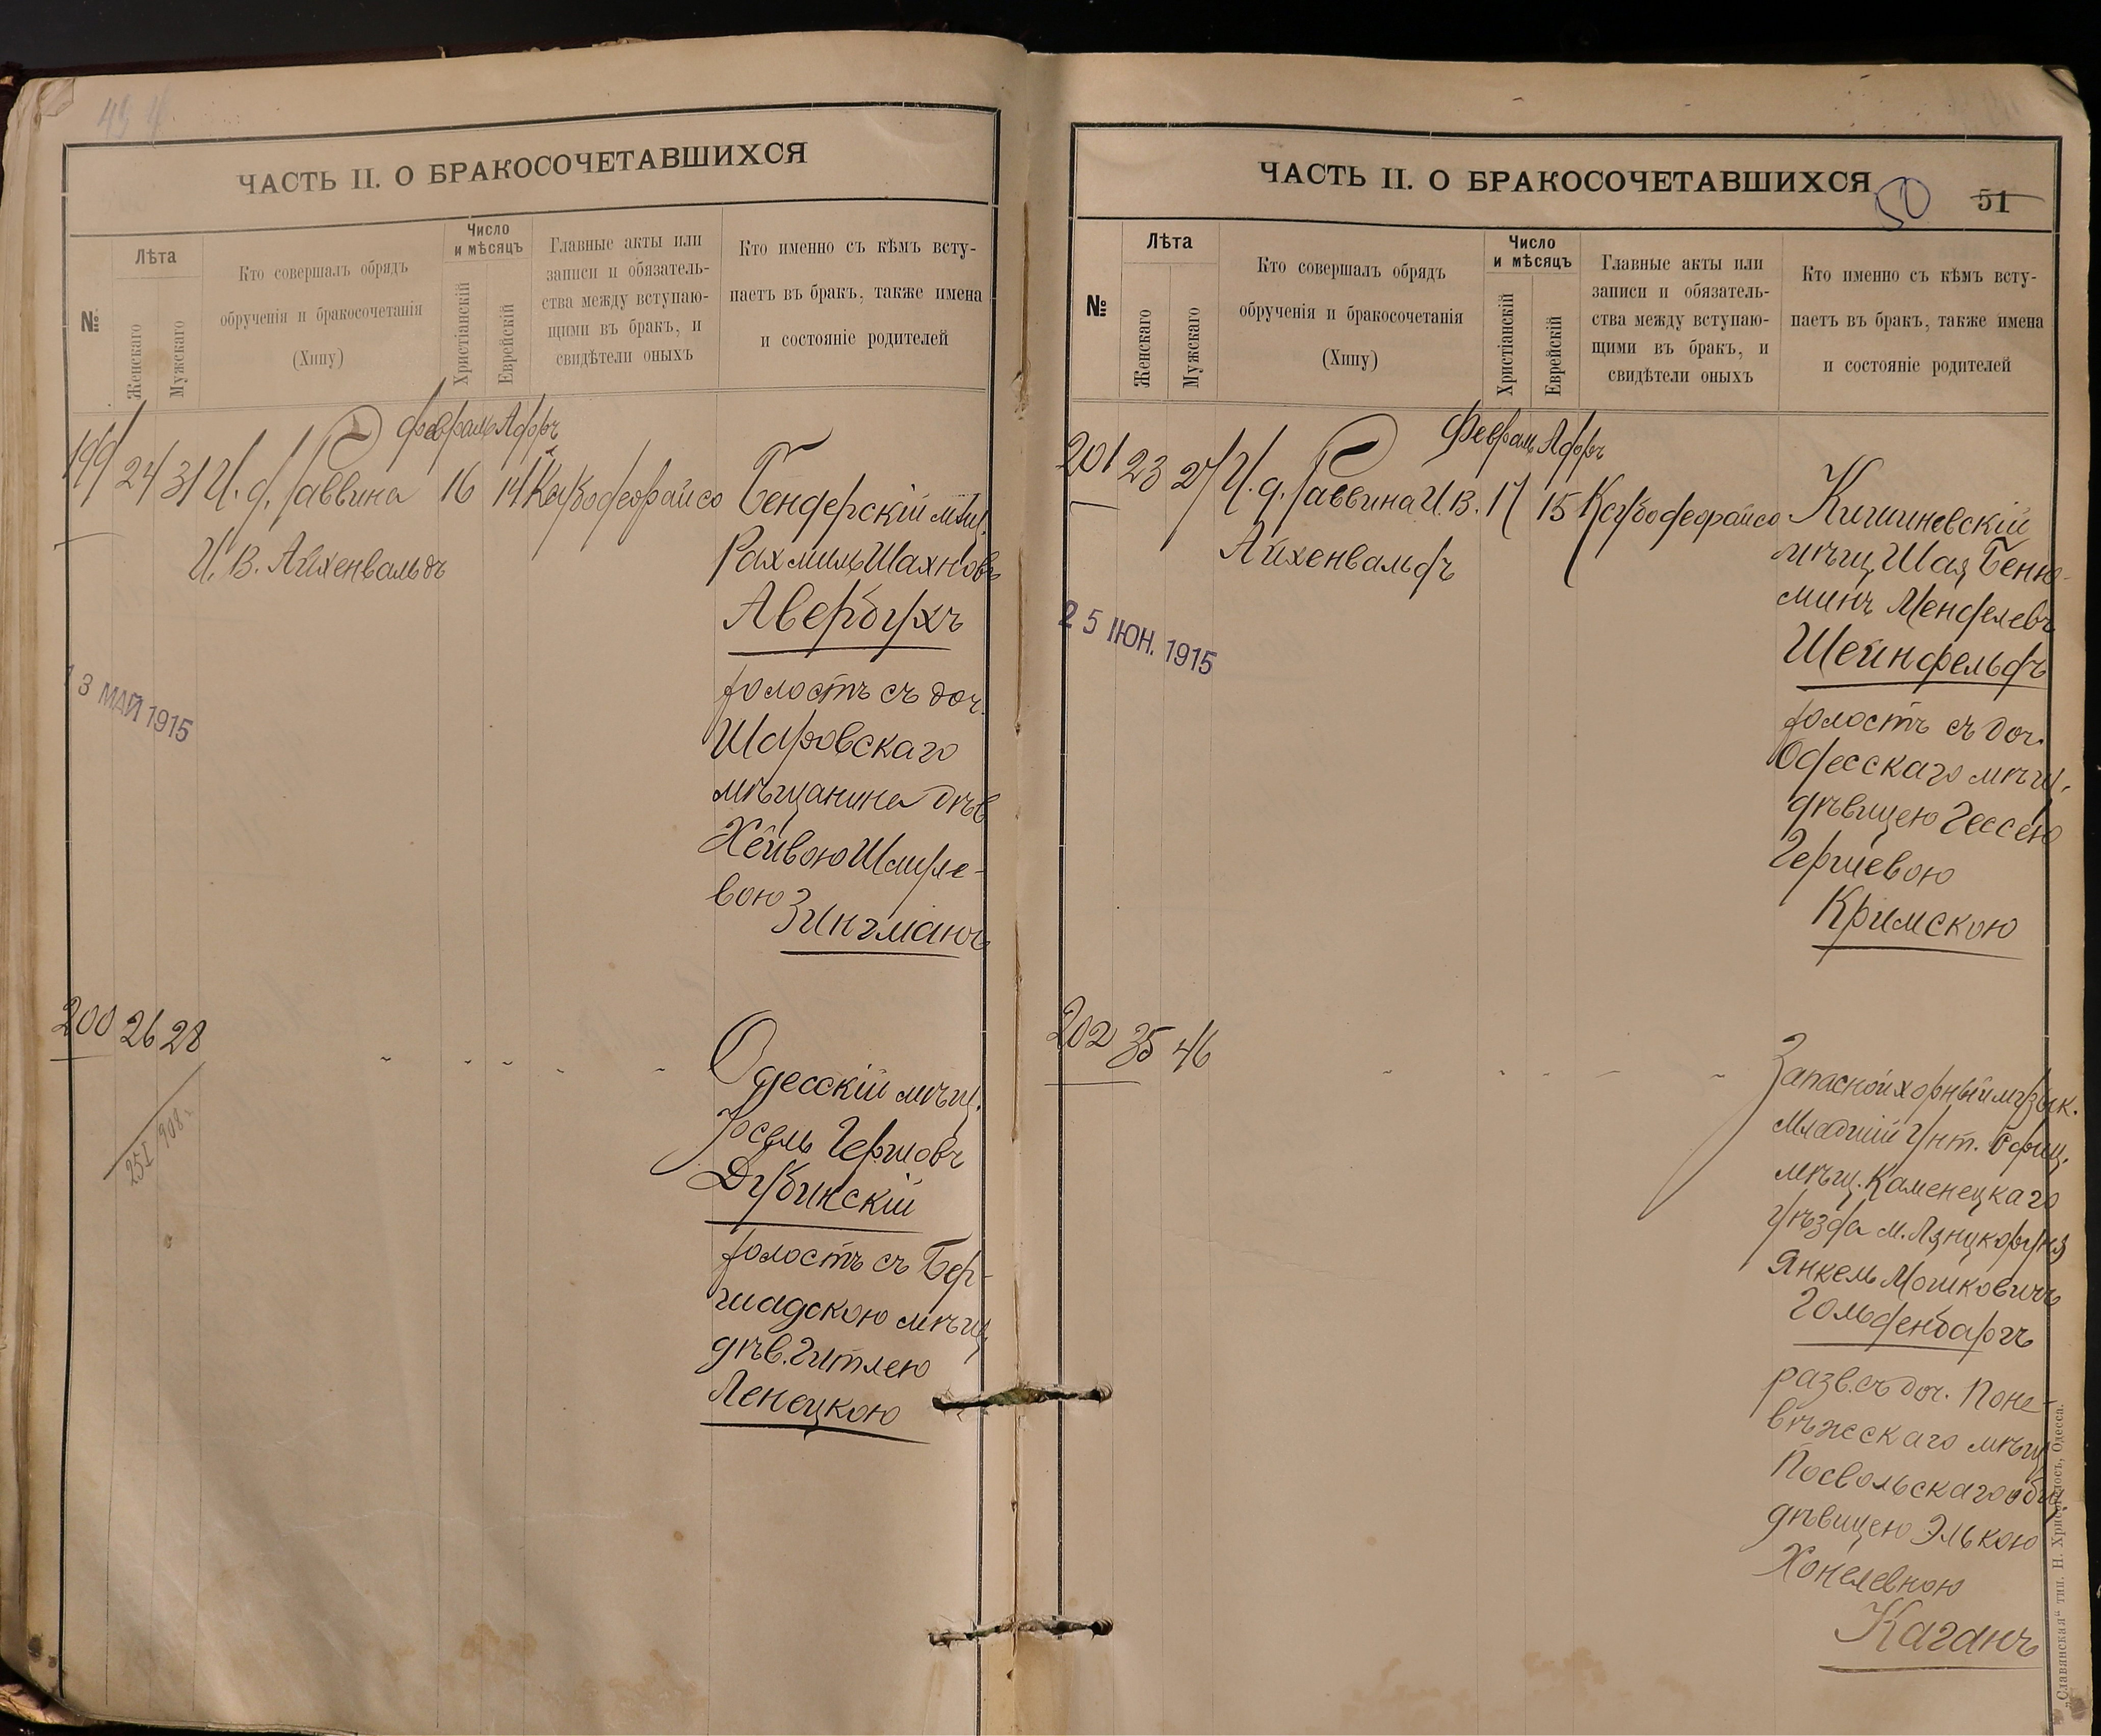 ЧАСТЬ II. О БРАКОСОЧЕТАВШИХСЯ
№
Лѣта
Женскаго
Мужскаго
Кто совершалъ обрядъ
обрученія и бракосочетанія
(Хипу)
Число
и мѣсяцъ
Христіанскій
Еврейскій
Главные акты или
записи и обязатель-
ства между вступаю-
щими въ бракъ, и
свидѣтели оныхъ
Кто именно съ кѣмъ всту-
паетъ въ бракъ, также имена
и состояніе родителей
Февраль Адоръ
199 24 31 И. д. Раввина 16 14 Кесубо деорайсо
И. В. Айхенвальдъ
Бендерскій мѣщ.
Рахмиль Шахновъ
Авербухъ
холостъ съ доч.
мѣщанина дѣв
Хейвою Шмуле-
вою
Зингманъ
13 МАЙ 1915
200 26 28
25 I 908 г.
Одесскій мѣщ.
Іосель Гершовъ
Дубинскій
холостъ съ Бер-
шадскою мѣщ
дѣв. Гитлею
Ленецкою
ЧАСТЬ II. О БРАКОСОЧЕТАВШИХСЯ
50 51
№
Лѣта
Женскаго
Мужскаго
Кто совершалъ обрядъ
обрученія и бракосочетанія
(Хипу)
Число
и мѣсяцъ
Христіанскій
Еврейскій
Главные акты или
записи и обязатель-
ства между вступаю-
щими въ бракъ, и
свидѣтели оныхъ
Кто именно съ кѣмъ всту-
паетъ въ бракъ, также имена
и состояніе родителей
Февраль Адоръ
201 23 27 И. д. Раввина И. В. 17 15 Кесубо деорайсо
Айхенвальдъ
Кишиневскій
мѣщ. Шая Беню-
минъ Менделевъ
Шейнфельдъ
холостъ съ доч.
Одесскаго мѣщ.
дѣвицею Гессею
Гершевою
Кримскою
25 ІЮН. 1915
202 35 46
Запасной хорный музык.
Младшій Унт. Офиц.
мѣщ. Каменецкаго
уѣзда м. Лянцкоруня
Янкель Мошковичъ
Гольденбаргъ
разв. съ доч. Поне-
вѣжскаго мѣщ
Посвольскаго общ
дѣвицею Элькою
Хонелевною
Каганъ
„Славянская“ тип. Н. Хрисогелосъ, Одесса.